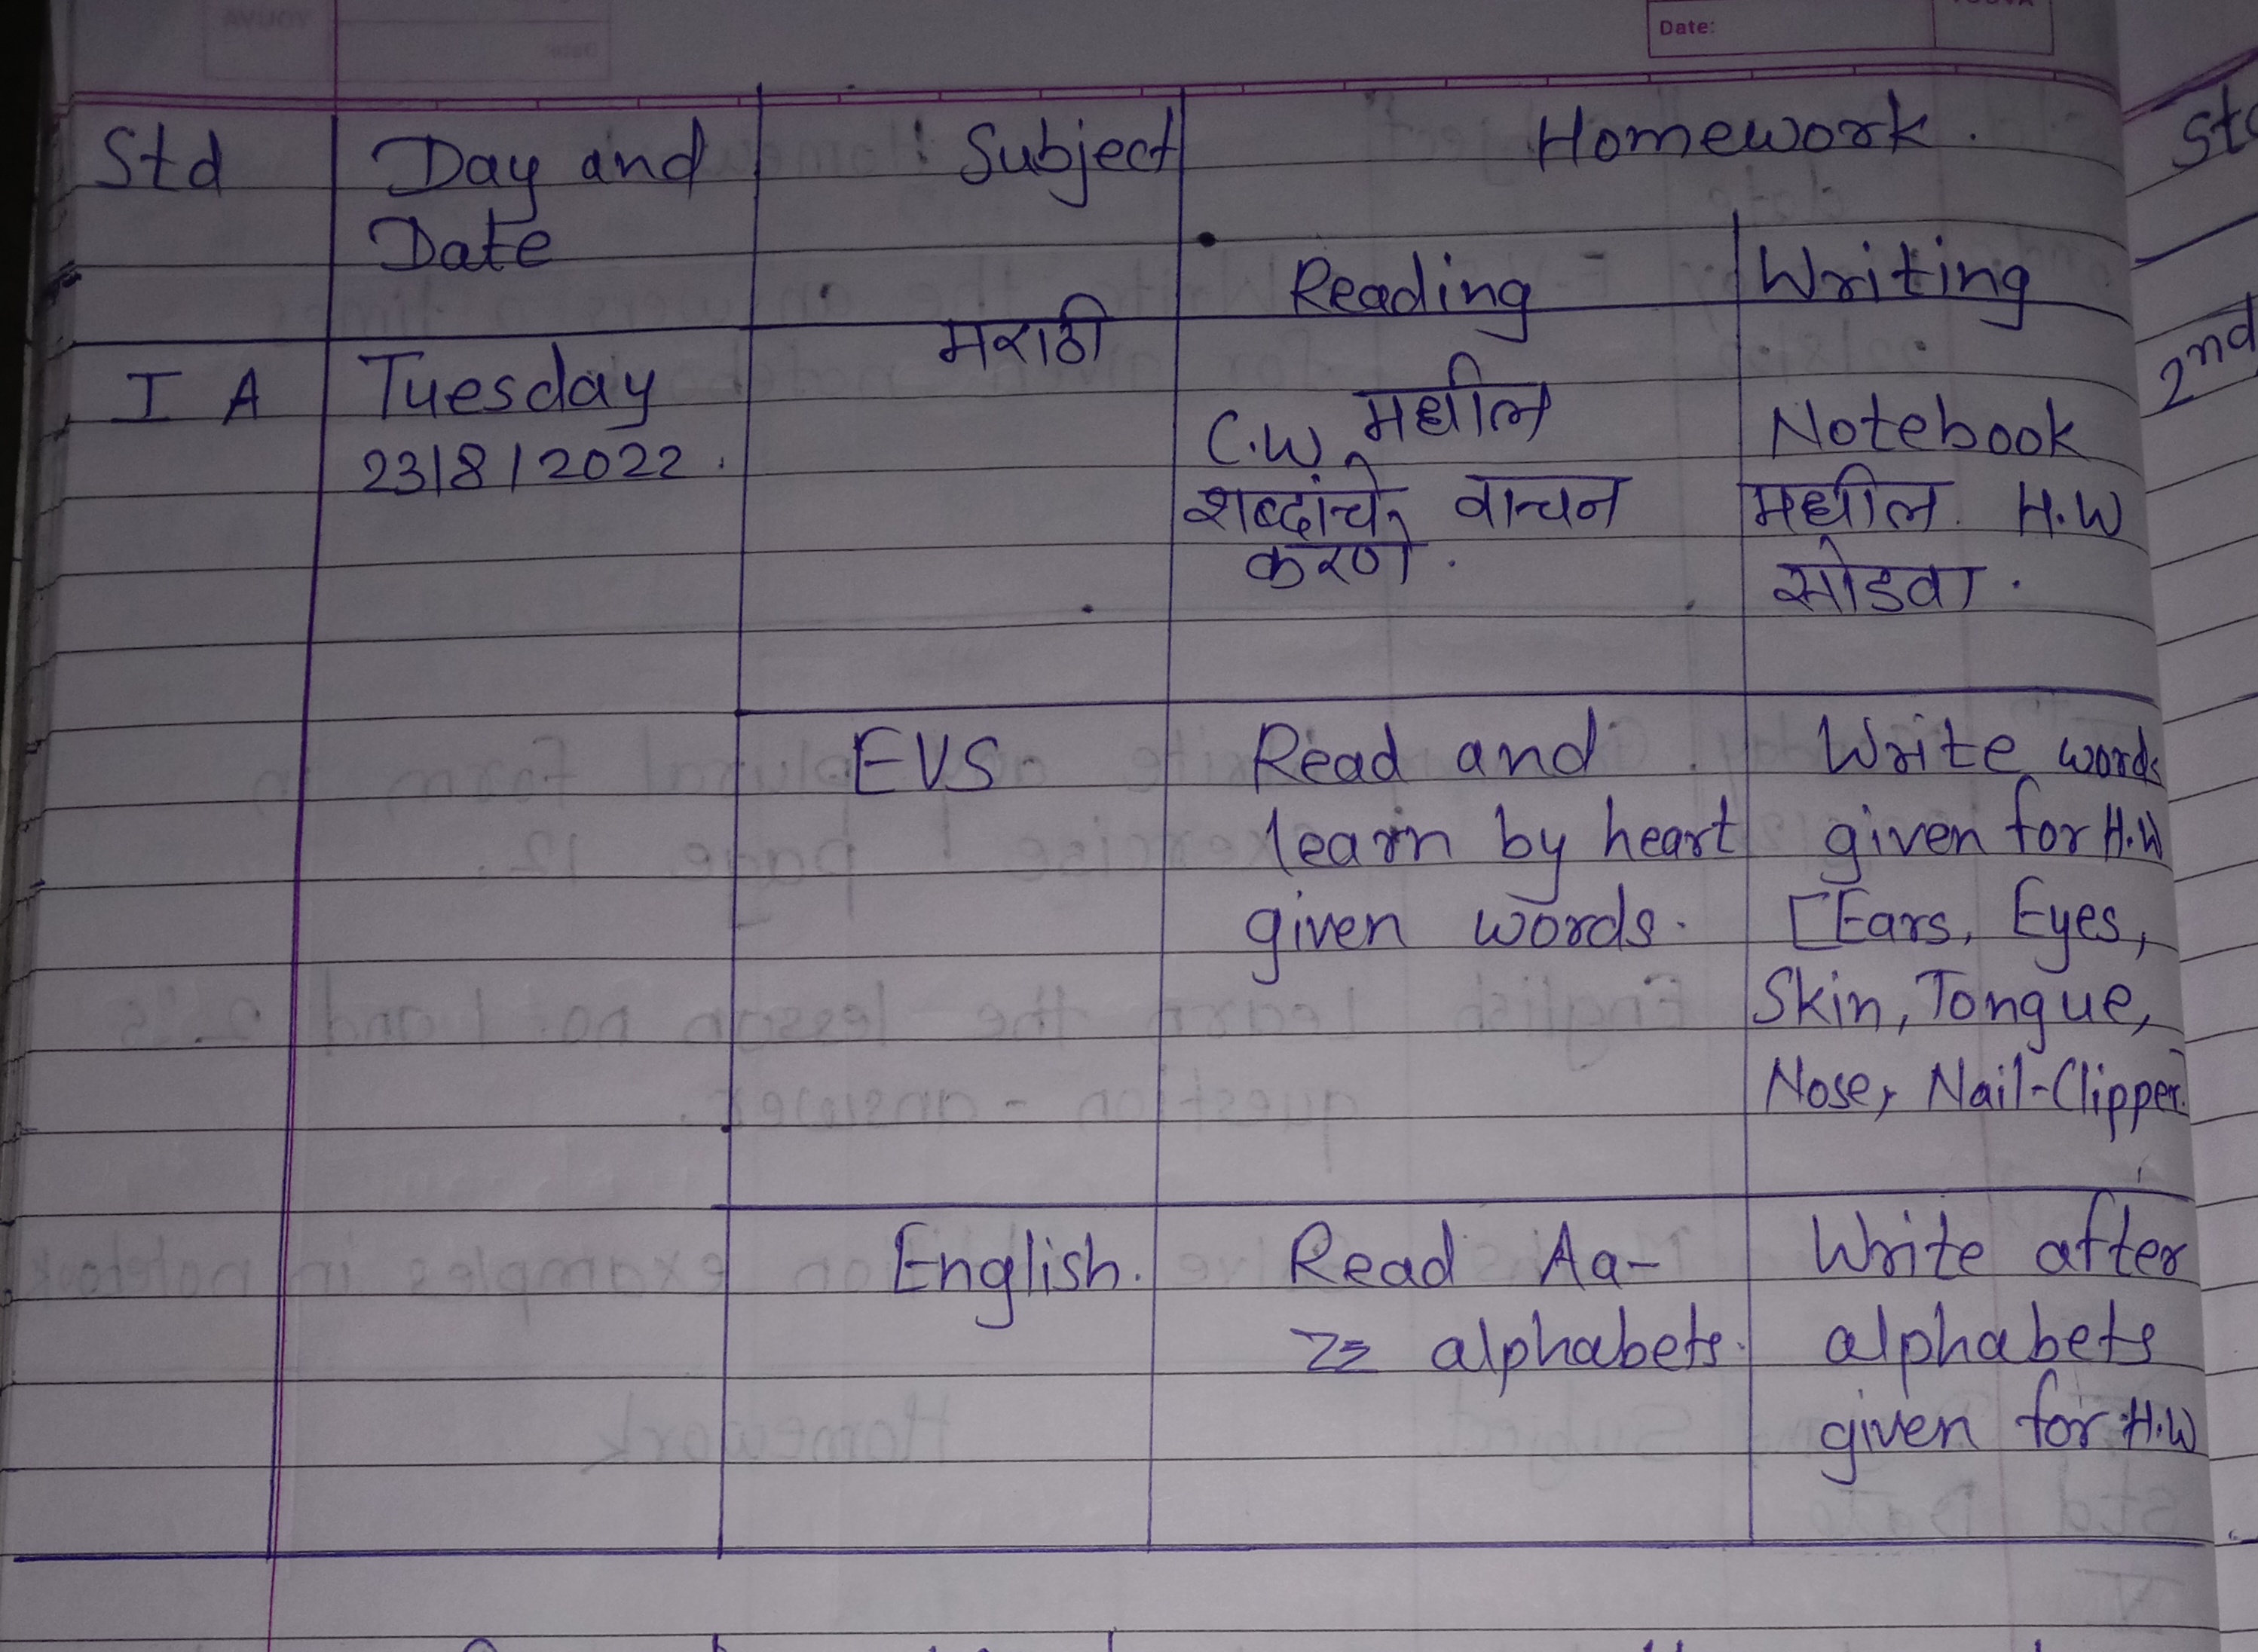 Date:
Std Day and Subject Homework.
Date
Reading Writing
I A Tuesday मराठी
23/8/2022. C.W मधील Notebook
शब्दांचे वाचन मधील H.W
करणे. सोडवा.
EVS Read and Write words
learn by heart given for H.W
given words. [Ears, Eyes,
Skin, Tongue,
Nose, Nail-Clipper.]
English. Read Aa- Write after
Zz alphabets. alphabets
given for H.W
2nd